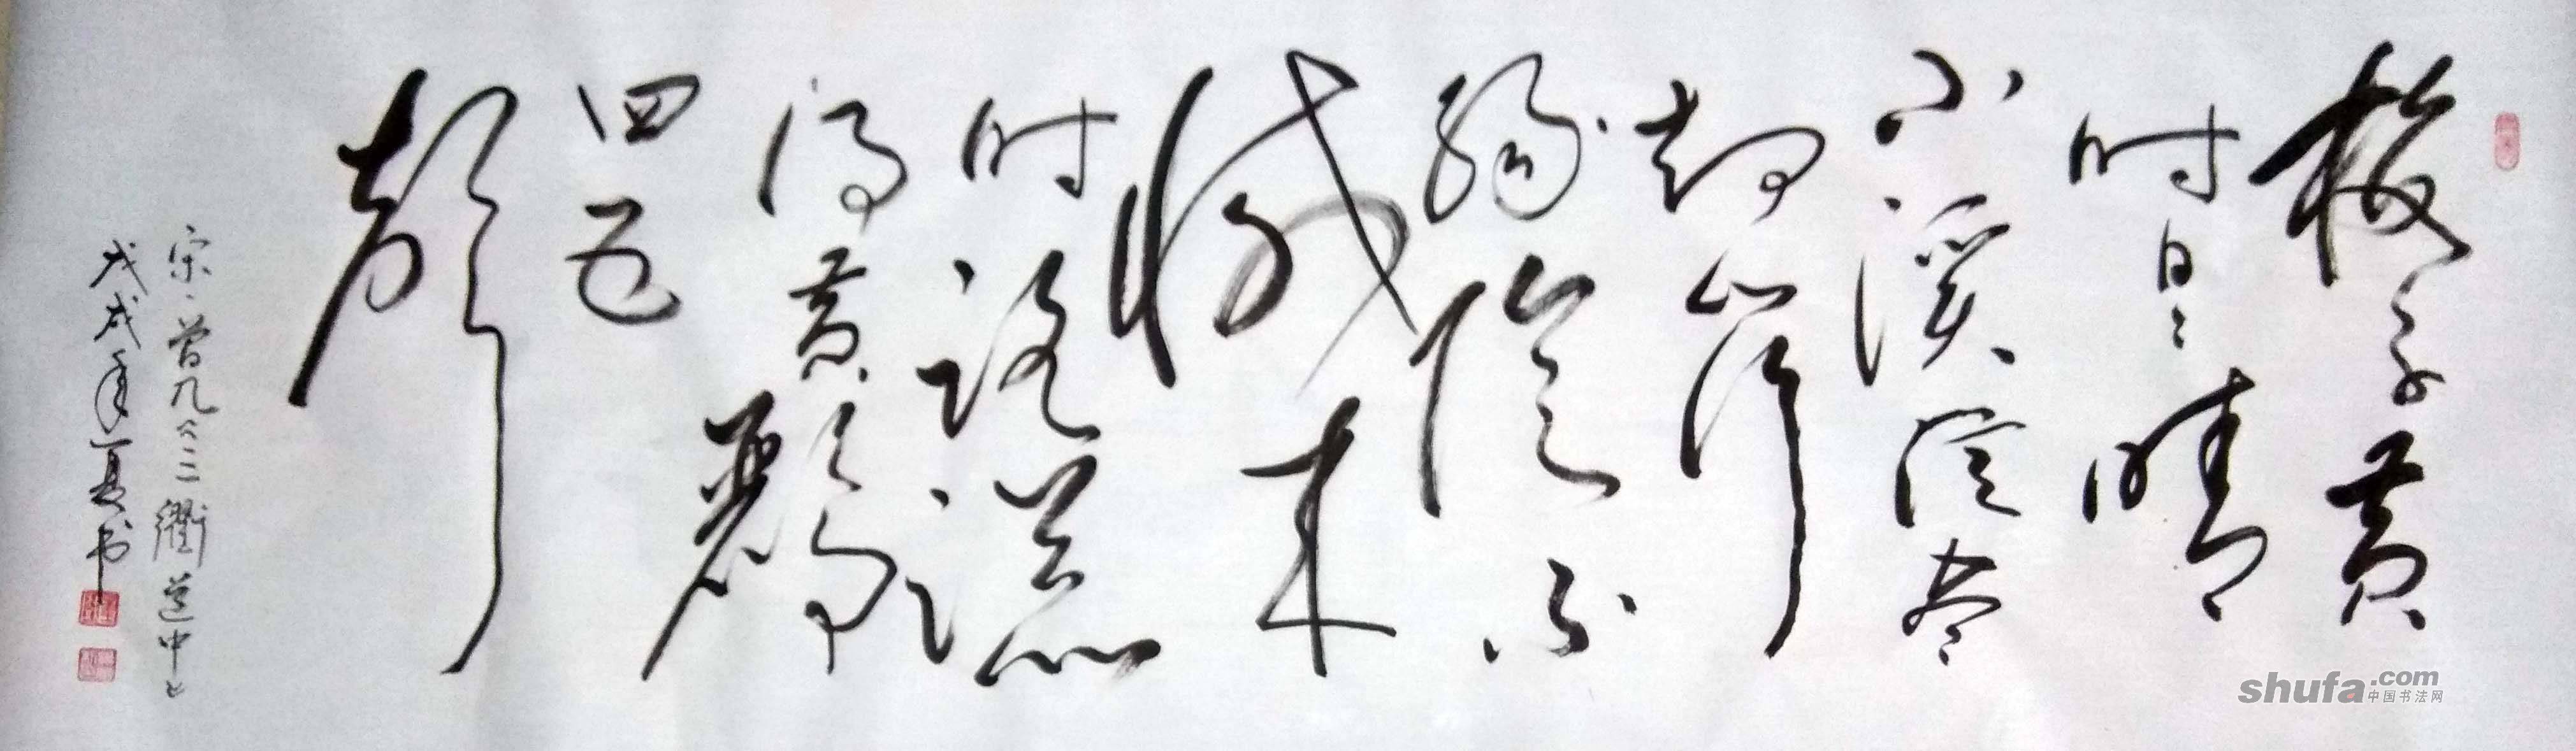 梅子黄
时日日晴
小溪泛尽
却山行
绿陰不
减来
时路添
得黄鹂
四五
声
宋、曾几《三衢道中》
戊戌年夏书
shufa.com
中国书法网